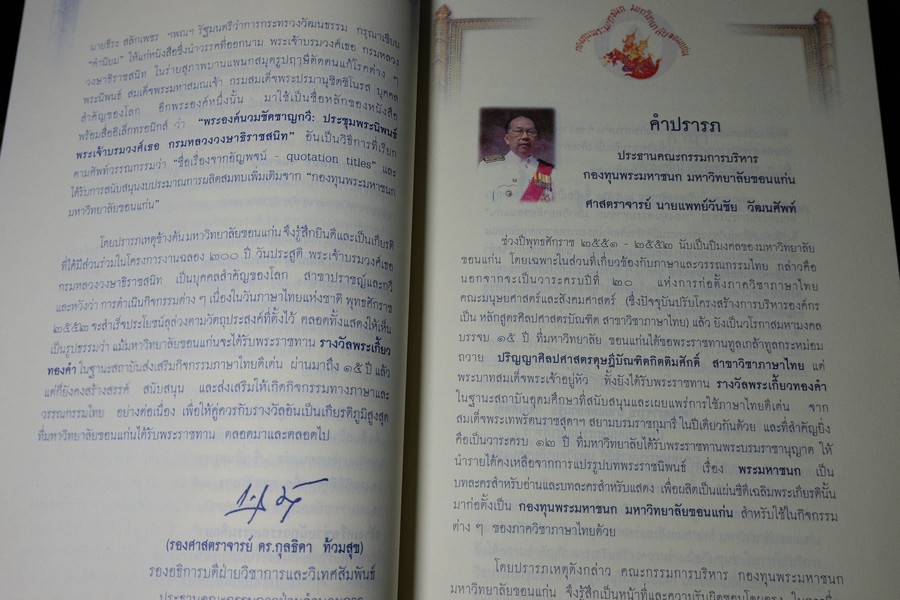 นายธีระ สลักเพชร ฯพณฯ รัฐมนตรีว่าการกระทรวงวัฒนธรรม กรุณาเขียน
“คำนิยม” ให้แก่หนังสือซึ่งนำวรรคที่ออกนาม พระเจ้าบรมวงศ์เธอ กรมหลวง
วงษาธิราชสนิท ในร่ายสุภาพบานแพนกสมุดรูปฤๅษีดัดตนแก้โรคต่าง ๆ
พระนิพนธ์ สมเด็จพระมหาสมณเจ้า กรมสมเด็จพระปรมานุชิตชิโนรส บุคคล
สำคัญของโลก อีกพระองค์หนึ่งนั้น มาใช้เป็นชื่อหลักของหนังสือ
พร้อมสื่ออิเล็กทรอนิกส์ ว่า “พระองค์นวมชัดชาญกวี: ประชุมพระนิพนธ์
พระเจ้าบรมวงศ์เธอ กรมหลวงวงษาธิราชสนิท” อันเป็นวิธีการที่เรียก
ตามศัพท์วรรณกรรมว่า “ชื่อเรื่องจากอัญพจน์ - quotation titles” และ
ได้รับการสนับสนุนงบประมาณการผลิตสมทบเพิ่มเติมจาก “กองทุนพระมหาชนก
มหาวิทยาลัยขอนแก่น”
โดยปรารภเหตุข้างต้น มหาวิทยาลัยขอนแก่น จึงรู้สึกยินดีและเป็นเกียรติ
ที่ได้มีส่วนร่วมในโครงการงานฉลอง ๒๐๐ ปี วันประสูติ พระเจ้าบรมวงศ์เธอ
กรมหลวงวงษาธิราชสนิท เป็นบุคคลสำคัญของโลก สาขาปราชญ์และกวี
และหวังว่า การดำเนินกิจกรรมต่าง ๆ เนื่องในวันภาษาไทยแห่งชาติ พุทธศักราช
๒๕๕๒ จะสำเร็จประโยชน์ลุล่วงตามวัตถุประสงค์ที่ตั้งไว้ ตลอดทั้งแสดงให้เห็น
เป็นรูปธรรมว่า แม้มหาวิทยาลัยขอนแก่นจะได้รับพระราชทาน รางวัลพระเกี้ยว
ทองคำ ในฐานะสถาบันส่งเสริมกิจกรรมภาษาไทยดีเด่น ผ่านมาถึง ๑๕ ปี แล้ว
แต่ก็ยังคงสร้างสรรค์ สนับสนุน และส่งเสริมให้เกิดกิจกรรมทางภาษาและ
วรรณกรรมไทย อย่างต่อเนื่อง เพื่อให้คู่ควรกับรางวัลอันเป็นเกียรติภูมิสูงสุด
ที่มหาวิทยาลัยขอนแก่นได้รับพระราชทาน ตลอดมาและตลอดไป
(รองศาสตราจารย์ ดร.กุลธิดา ท้วมสุข)
รองอธิการบดีฝ่ายวิชาการและวิเทศสัมพันธ์
กองทุนพระมหาชนก มหาวิทยาลัยขอนแก่น
คำปรารภ
ประธานคณะกรรมการบริหาร
กองทุนพระมหาชนก มหาวิทยาลัยขอนแก่น
ศาสตราจารย์ นายแพทย์วันชัย วัฒนศัพท์
ช่วงปีพุทธศักราช ๒๕๕๑ - ๒๕๕๒ นับเป็นปีมงคลของมหาวิทยาลัย
ขอนแก่น โดยเฉพาะในส่วนที่เกี่ยวข้องกับภาษาและวรรณกรรมไทย กล่าวคือ
นอกจากจะเป็นวาระครบปีที่ ๒๐ แห่งการก่อตั้งภาควิชาภาษาไทย
คณะมนุษยศาสตร์และสังคมศาสตร์ (ซึ่งปัจจุบันปรับโครงสร้างการบริหารองค์กร
เป็น หลักสูตรศิลปศาสตรบัณฑิต สาขาวิชาภาษาไทย) แล้ว ยังเป็นวโรกาสมหามงคล
บรรจบ ๑๕ ปี ที่มหาวิทยาลัย ขอนแก่นได้ขอพระราชทานทูลเกล้าทูลกระหม่อม
ถวาย ปริญญาศิลปศาสตรดุษฎีบัณฑิตกิตติมศักดิ์ สาขาวิชาภาษาไทย แด่
พระบาทสมเด็จพระเจ้าอยู่หัว ทั้งยังได้รับพระราชทาน รางวัลพระเกี้ยวทองคำ
ในฐานะสถาบันอุดมศึกษาที่สนับสนุนและเผยแพร่การใช้ภาษาไทยดีเด่น จาก
สมเด็จพระเทพรัตนราชสุดาฯ สยามบรมราชกุมารี ในปีเดียวกันด้วย และที่สำคัญยิ่ง
คือเป็นวาระครบ ๑๒ ปี ที่มหาวิทยาลัยได้รับพระราชทานพระบรมราชานุญาต ให้
นำรายได้คงเหลือจากการแปรรูปบทพระราชนิพนธ์ เรื่อง พระมหาชนก เป็น
บทละครสำหรับอ่านและบทละครสำหรับแสดง เพื่อผลิตเป็นแผ่นซีดีเฉลิมพระเกียรตินั้น
มาก่อตั้งเป็น กองทุนพระมหาชนก มหาวิทยาลัยขอนแก่น สำหรับใช้ในกิจกรรม
ต่าง ๆ ของภาควิชาภาษาไทยด้วย
โดยปรารภเหตุดังกล่าว คณะกรรมการบริหาร กองทุนพระมหาชนก
มหาวิทยาลัยขอนแก่น จึงรู้สึกเป็นหน้าที่และความรับผิดชอบโดยตรง